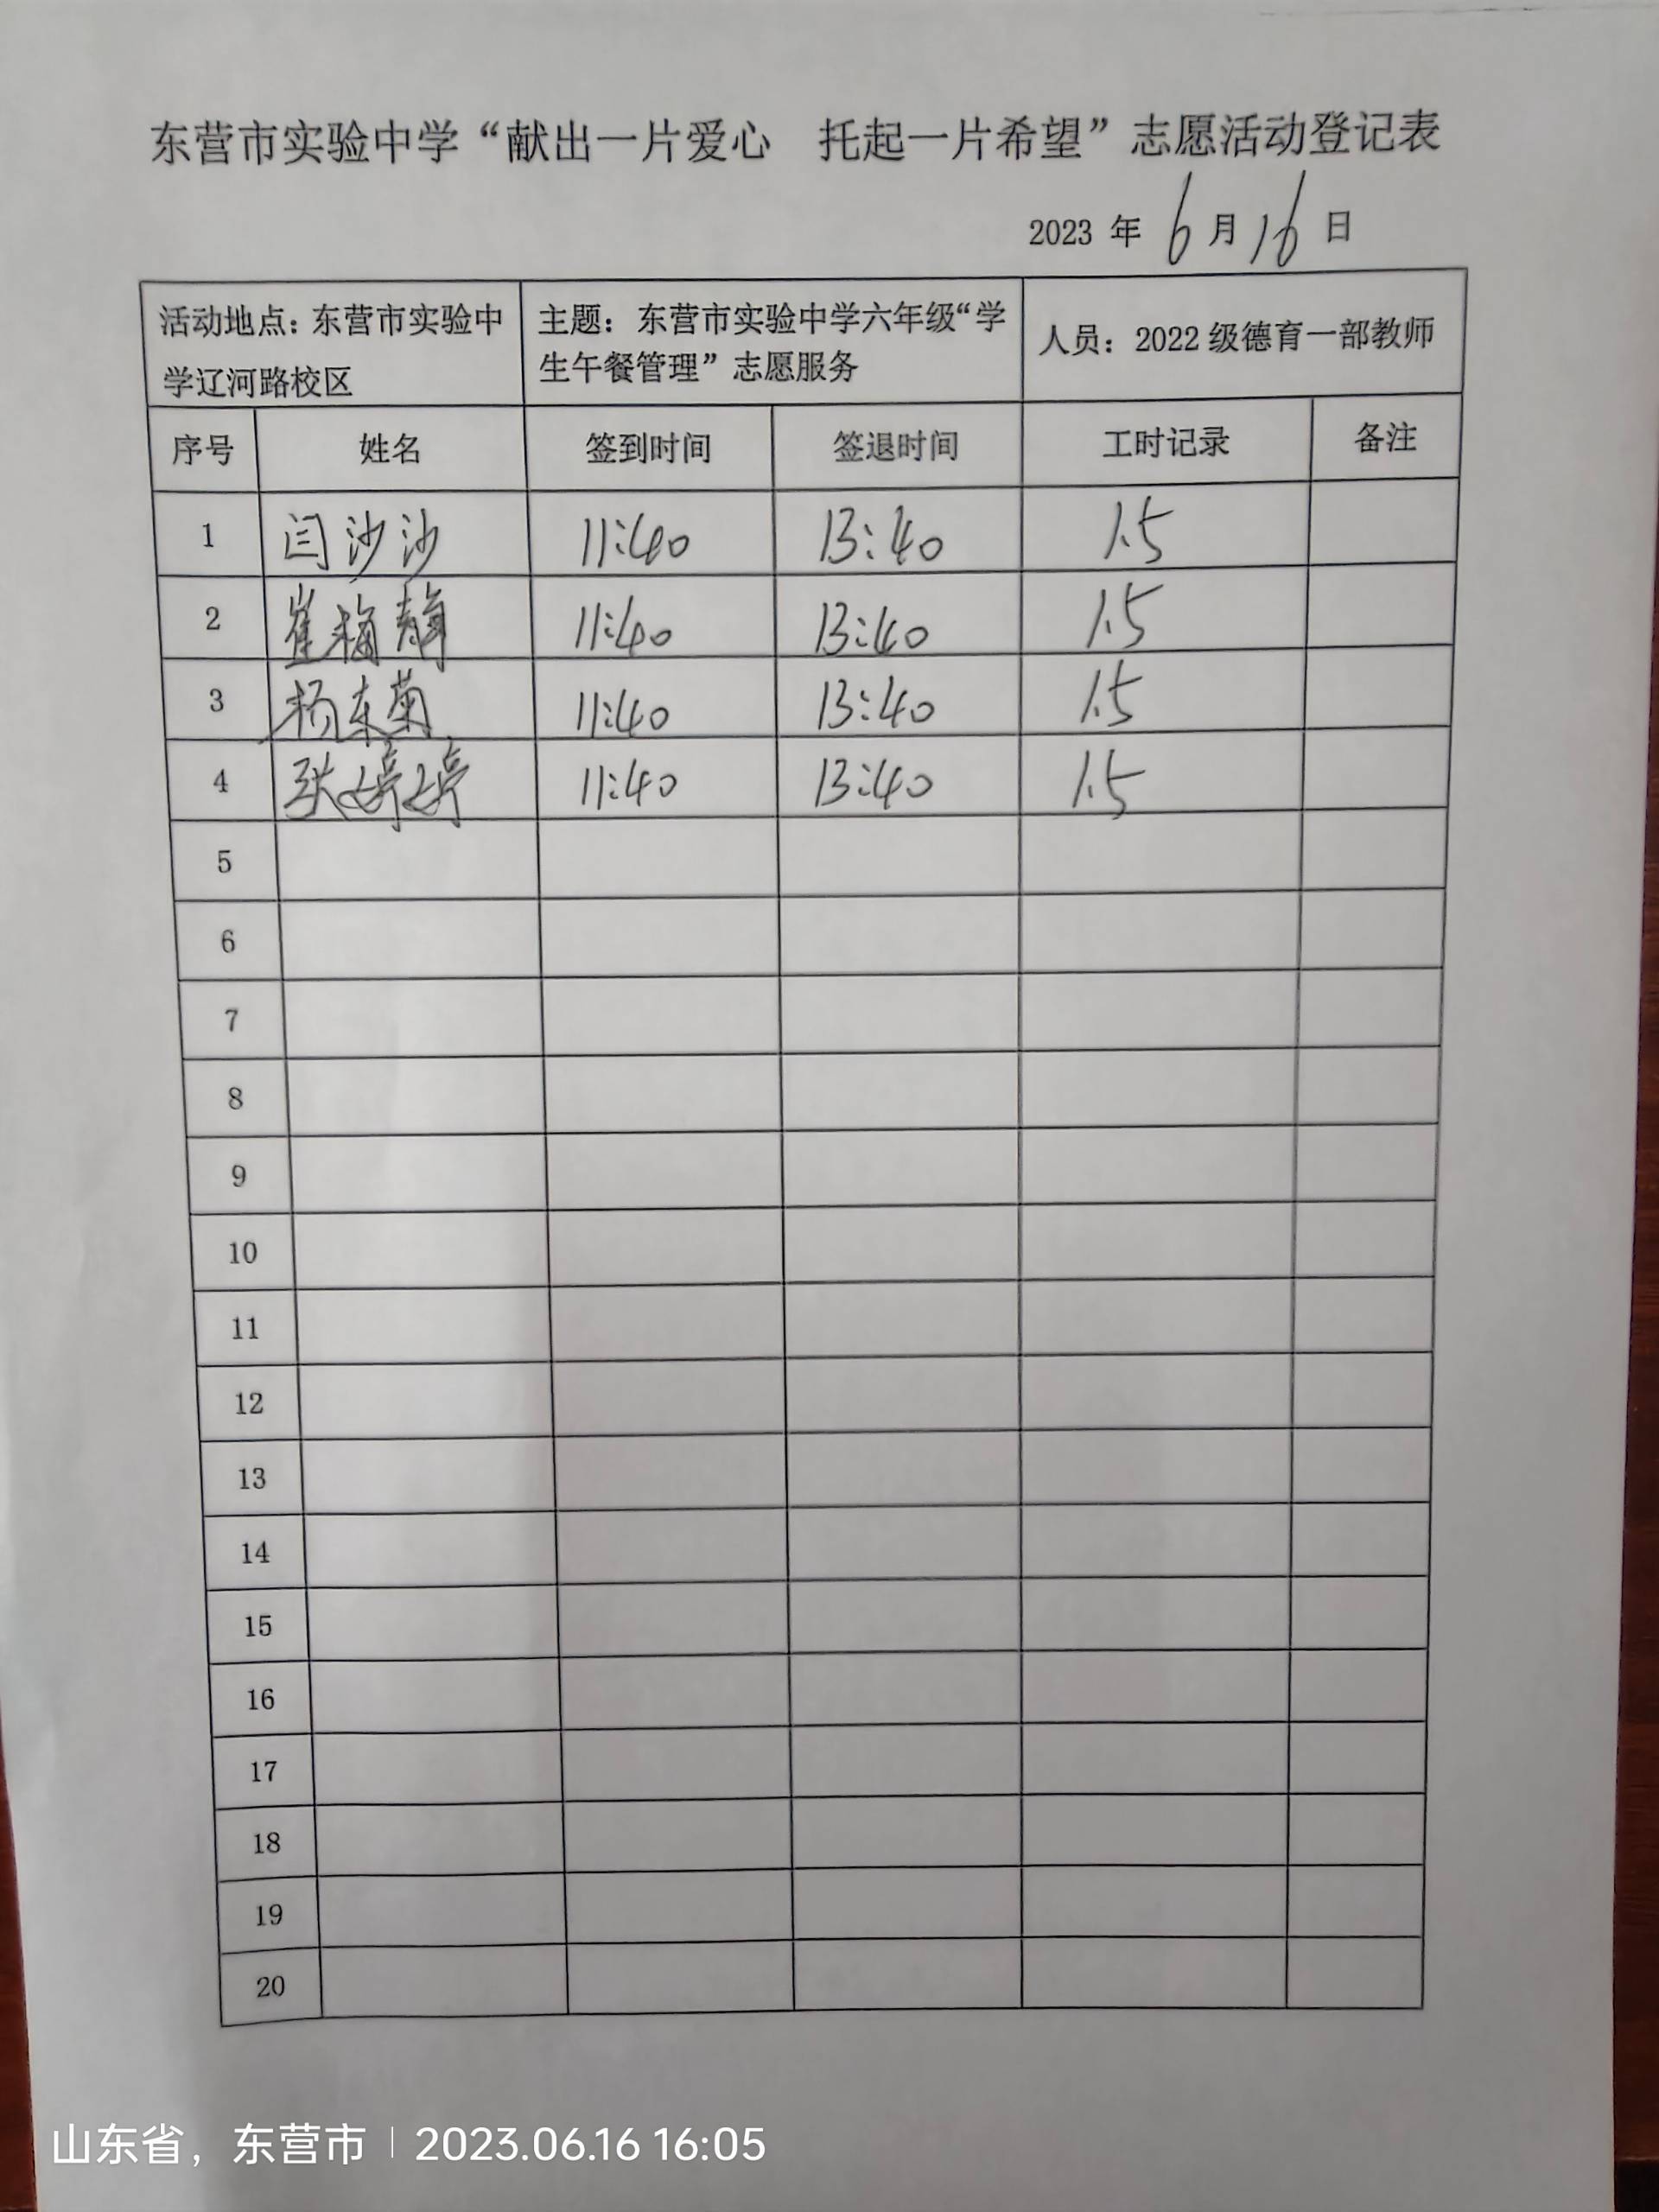 东营市实验中学“献出一片爱心 托起一片希望”志愿活动登记表
2023 年 6 月 16 日
活动地点：东营市实验中
学辽河路校区
主题：东营市实验中学六年级“学
生午餐管理”志愿服务
人员：2022 级德育一部教师
序号 姓名 签到时间 签退时间 工时记录 备注
1 闫沙沙 11:40 13:40 1.5
2 崔梅静 11:40 13:40 1.5
3 杨东菊 11:40 13:40 1.5
4 张婷婷 11:40 13:40 1.5
5
6
7
8
9
10
11
12
13
14
15
16
17
18
19
20
山东省，东营市 | 2023.06.16 16:05